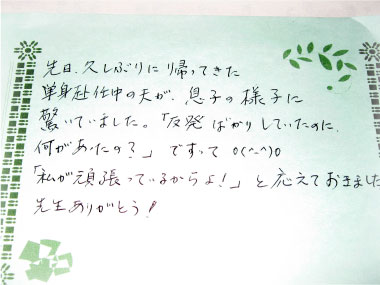 先日、久しぶりに帰ってきた
単身赴任中の夫が、息子の様子に
驚いていました。「反発ばかりしていたのに、
何があったの?」ですって o(^-^)o
「私が頑張っているからよ!」と応えておきました
先生ありがとう!